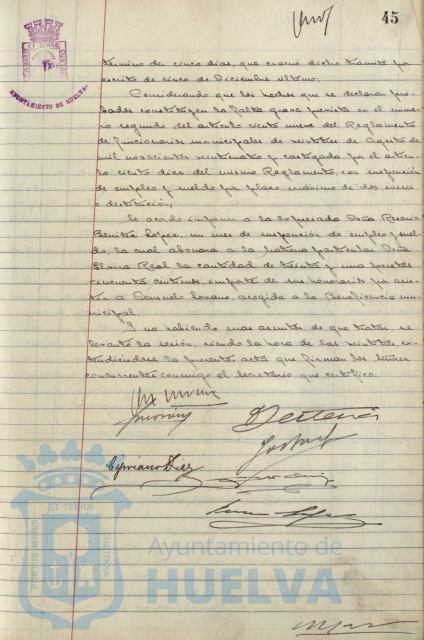 45
AYUNTAMIENTO DE HUELVA
término de cinco días, que evacuó dicho trámite por
escrito de cinco de Diciembre último;
Considerando que los hechos que se declaran pro-
bados constituyen la falta grave prevista en el núme-
ro segundo del artículo ciento nueve del Reglamento
de funcionarios municipales de veintitres de Agosto de
mil novecientos veinticuatro y castigada por el artícu-
lo ciento diez del mismo Reglamento, con suspensión
de empleo y sueldo por plazo máximo de dos meses
o destitución;
Se acordó imponer a la expresada Doña Rosario
Benítez López, un mes de suspensión de empleo y suel-
do, la cual abonará a la matrona particular Doña
Elvira Real la cantidad de treinta y una pesetas
cincuenta céntimos, importe de sus honorarios por asis-
tir a Consuelo Lozano, acogida a la Beneficencia mu-
nicipal.
Y no habiendo mas asuntos de que tratar, se
levantó la sesión, siendo la hora de las veintitres, ex-
tendiéndose la presente acta que firman los señores
concurrentes conmigo el Secretario que certifico.
Cipriano Diez
PORTUS MARIS ET TERRAE CUSTODIA
Ayuntamiento de
HUELVA